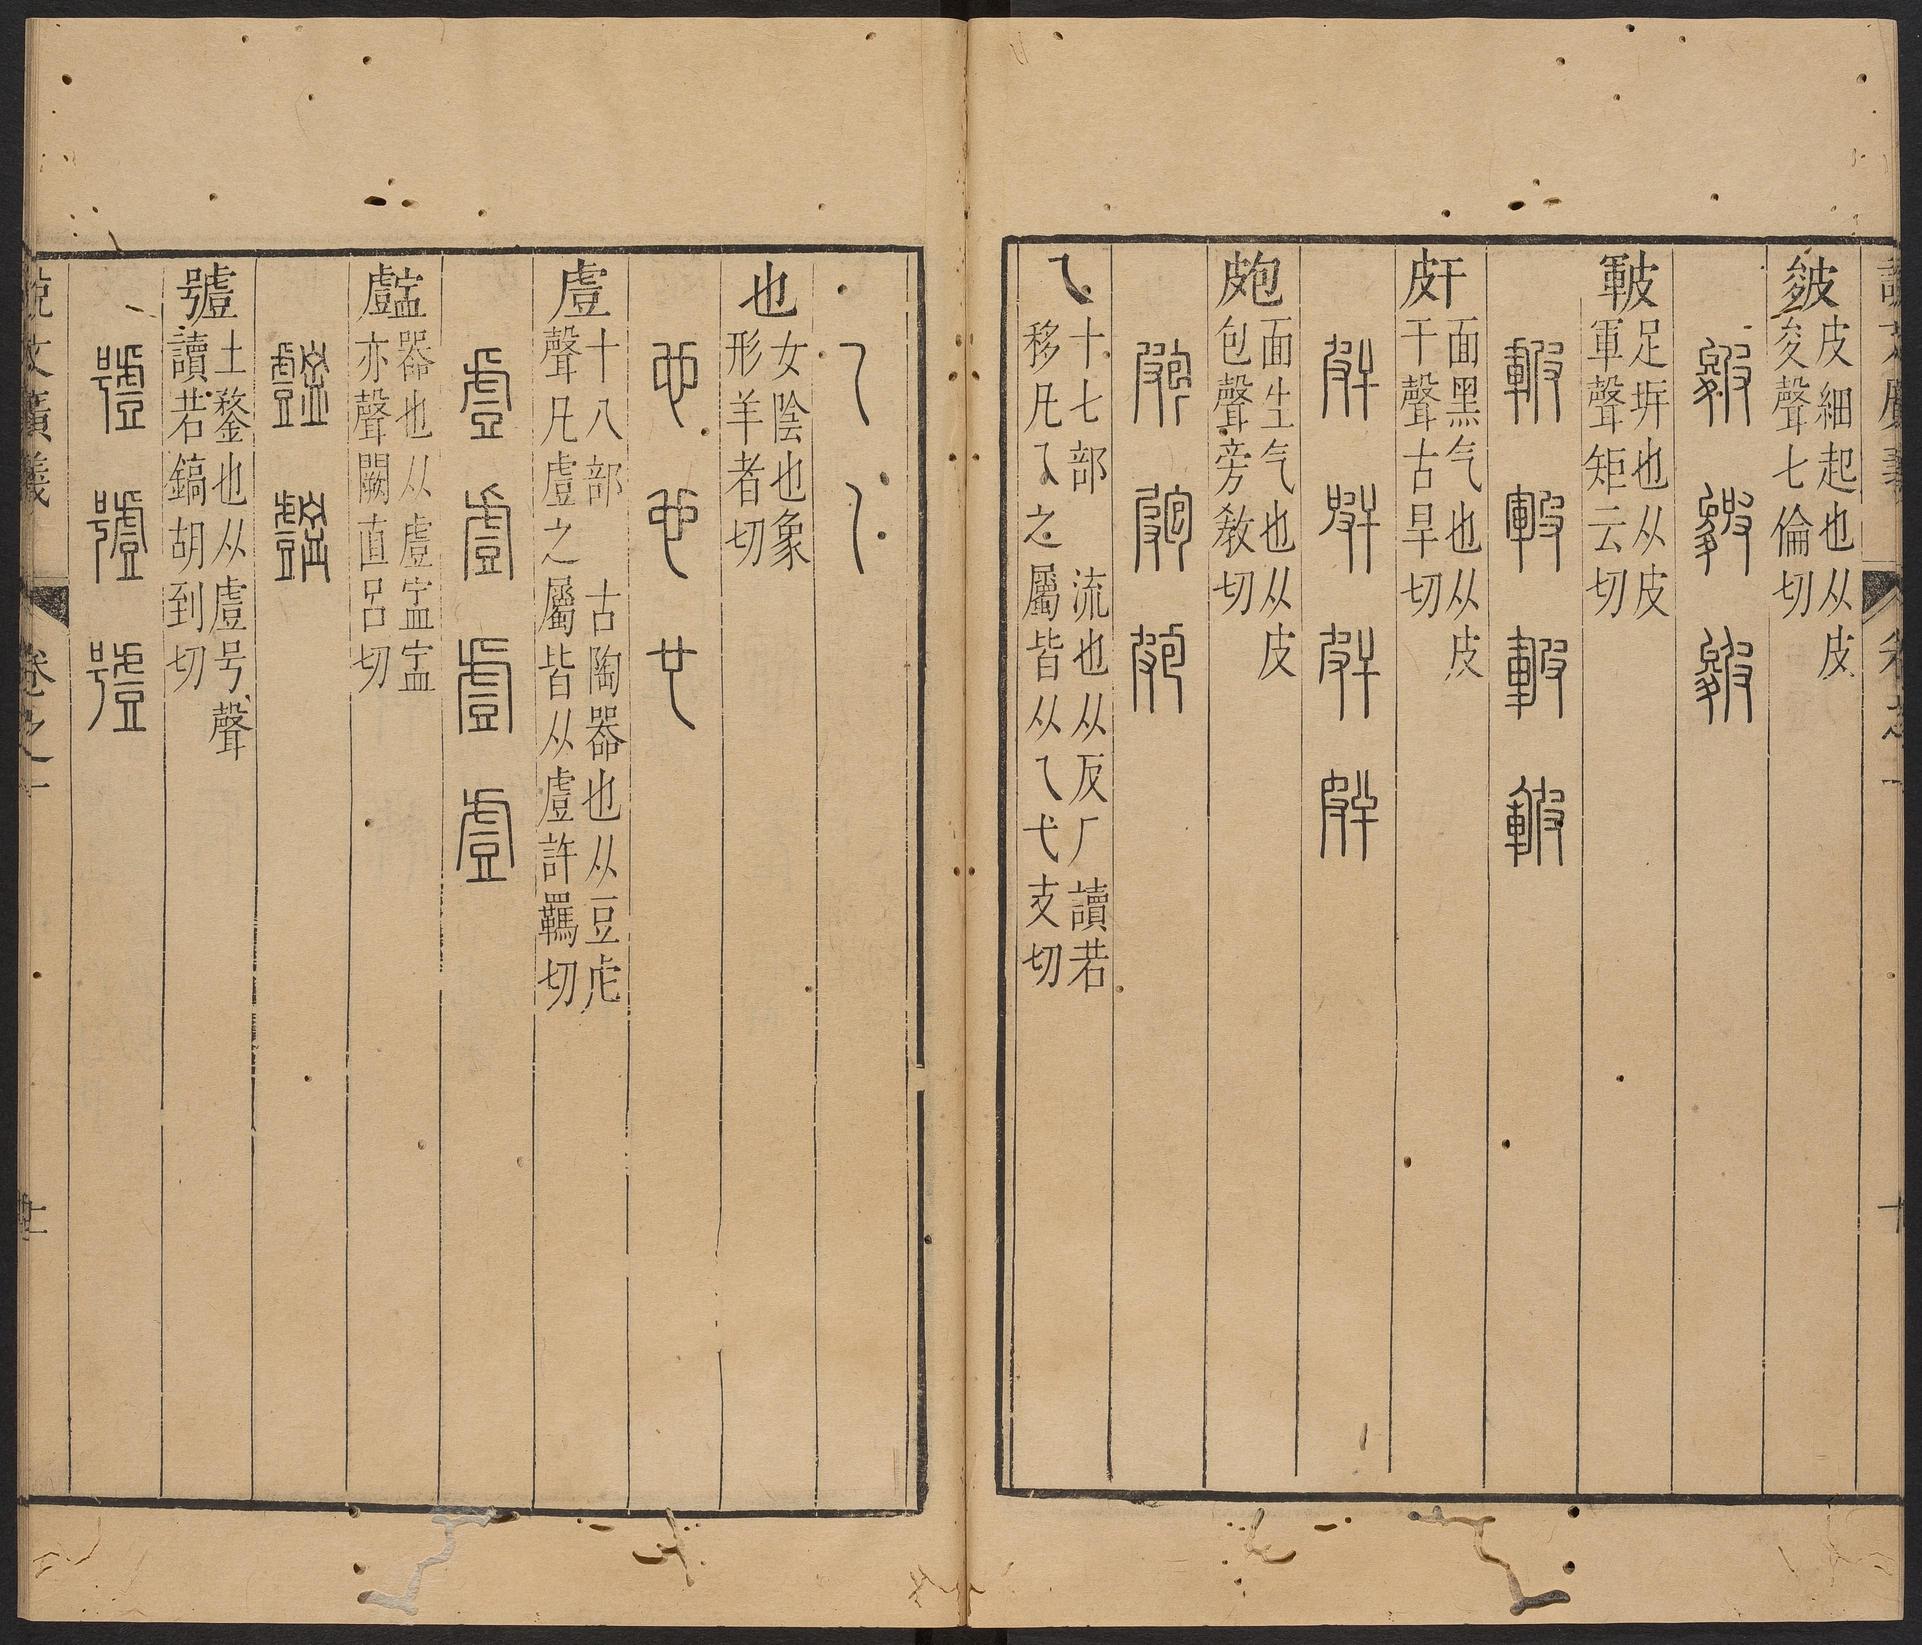 皴
皮細起也从皮
夋聲七倫切
皸
足坼也从皮
軍聲矩云切
皯
面黑气也从皮
干聲古旱切
皰
面生气也从皮
包聲旁教切
乁
十七部 流也从反厂讀若
移凡乁之屬皆从乁弋支切
也
女陰也象
形羊者切
䖒
十八部 古陶器也从豆虍
聲凡䖒之屬皆从䖒許羈切
器也从䖒䀇䀇
亦聲闕直呂切
土鍪也从䖒号聲
讀若鎬胡到切
說文廣義